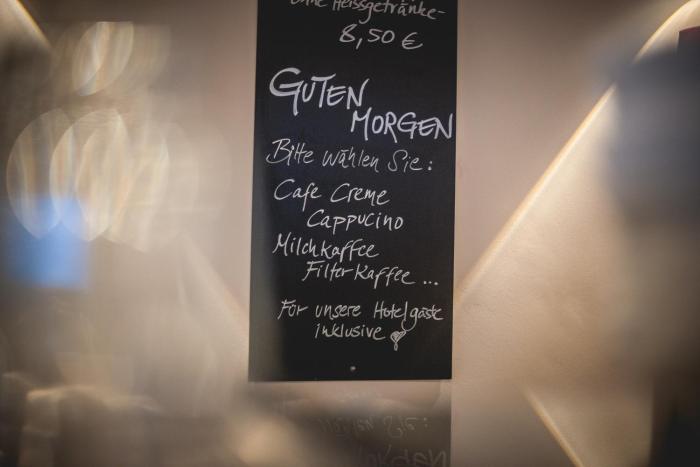 ohne Heissgetränke-
8,50 €
GUTEN
MORGEN
Bitte wählen Sie:
Cafe Creme
Cappucino
Milchkaffee
Filterkaffee ...
Für unsere Hotelgäste
inklusive